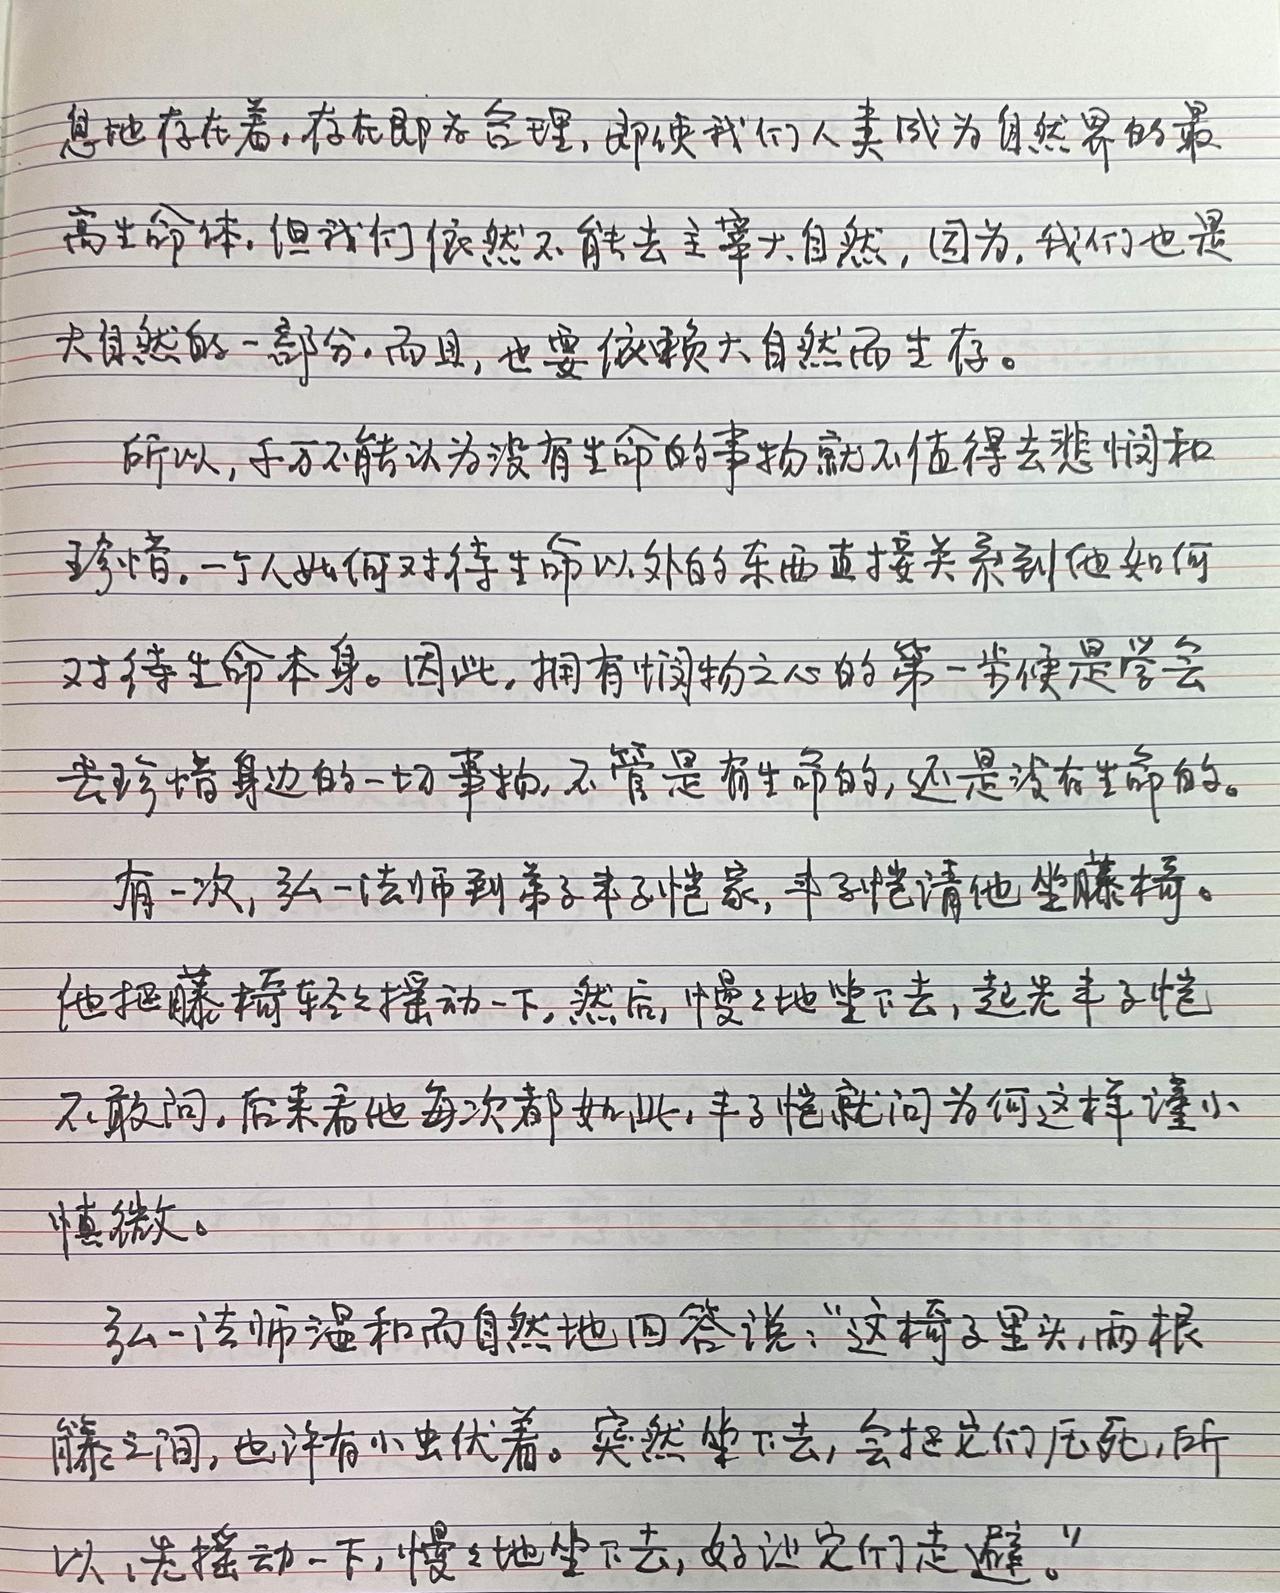 息地存在着，存在即为合理，即使我们人类成为自然界的最
高生命体，但我们依然不能去主宰大自然，因为，我们也是
大自然的一部分，而且，也要依赖大自然而生存。
所以，千万不能认为没有生命的事物就不值得去悲悯和
珍惜，一个人如何对待生命以外的东西直接关系到他如何
对待生命本身。因此，拥有悯物之心的第一步便是学会
去珍惜身边的一切事物，不管是有生命的，还是没有生命的。
有一次，弘一法师到弟子丰子恺家，丰子恺请他坐藤椅。
他把藤椅轻轻摇动一下，然后，慢慢地坐下去，起先丰子恺
不敢问，后来看他每次都如此，丰子恺就问为何这样谨小
慎微。
弘一法师温和而自然地回答说：“这椅子里头，两根
藤之间，也许有小虫伏着。突然坐下去，会把它们压死，所
以，先摇动一下，慢慢地坐下去，好让它们走避。”